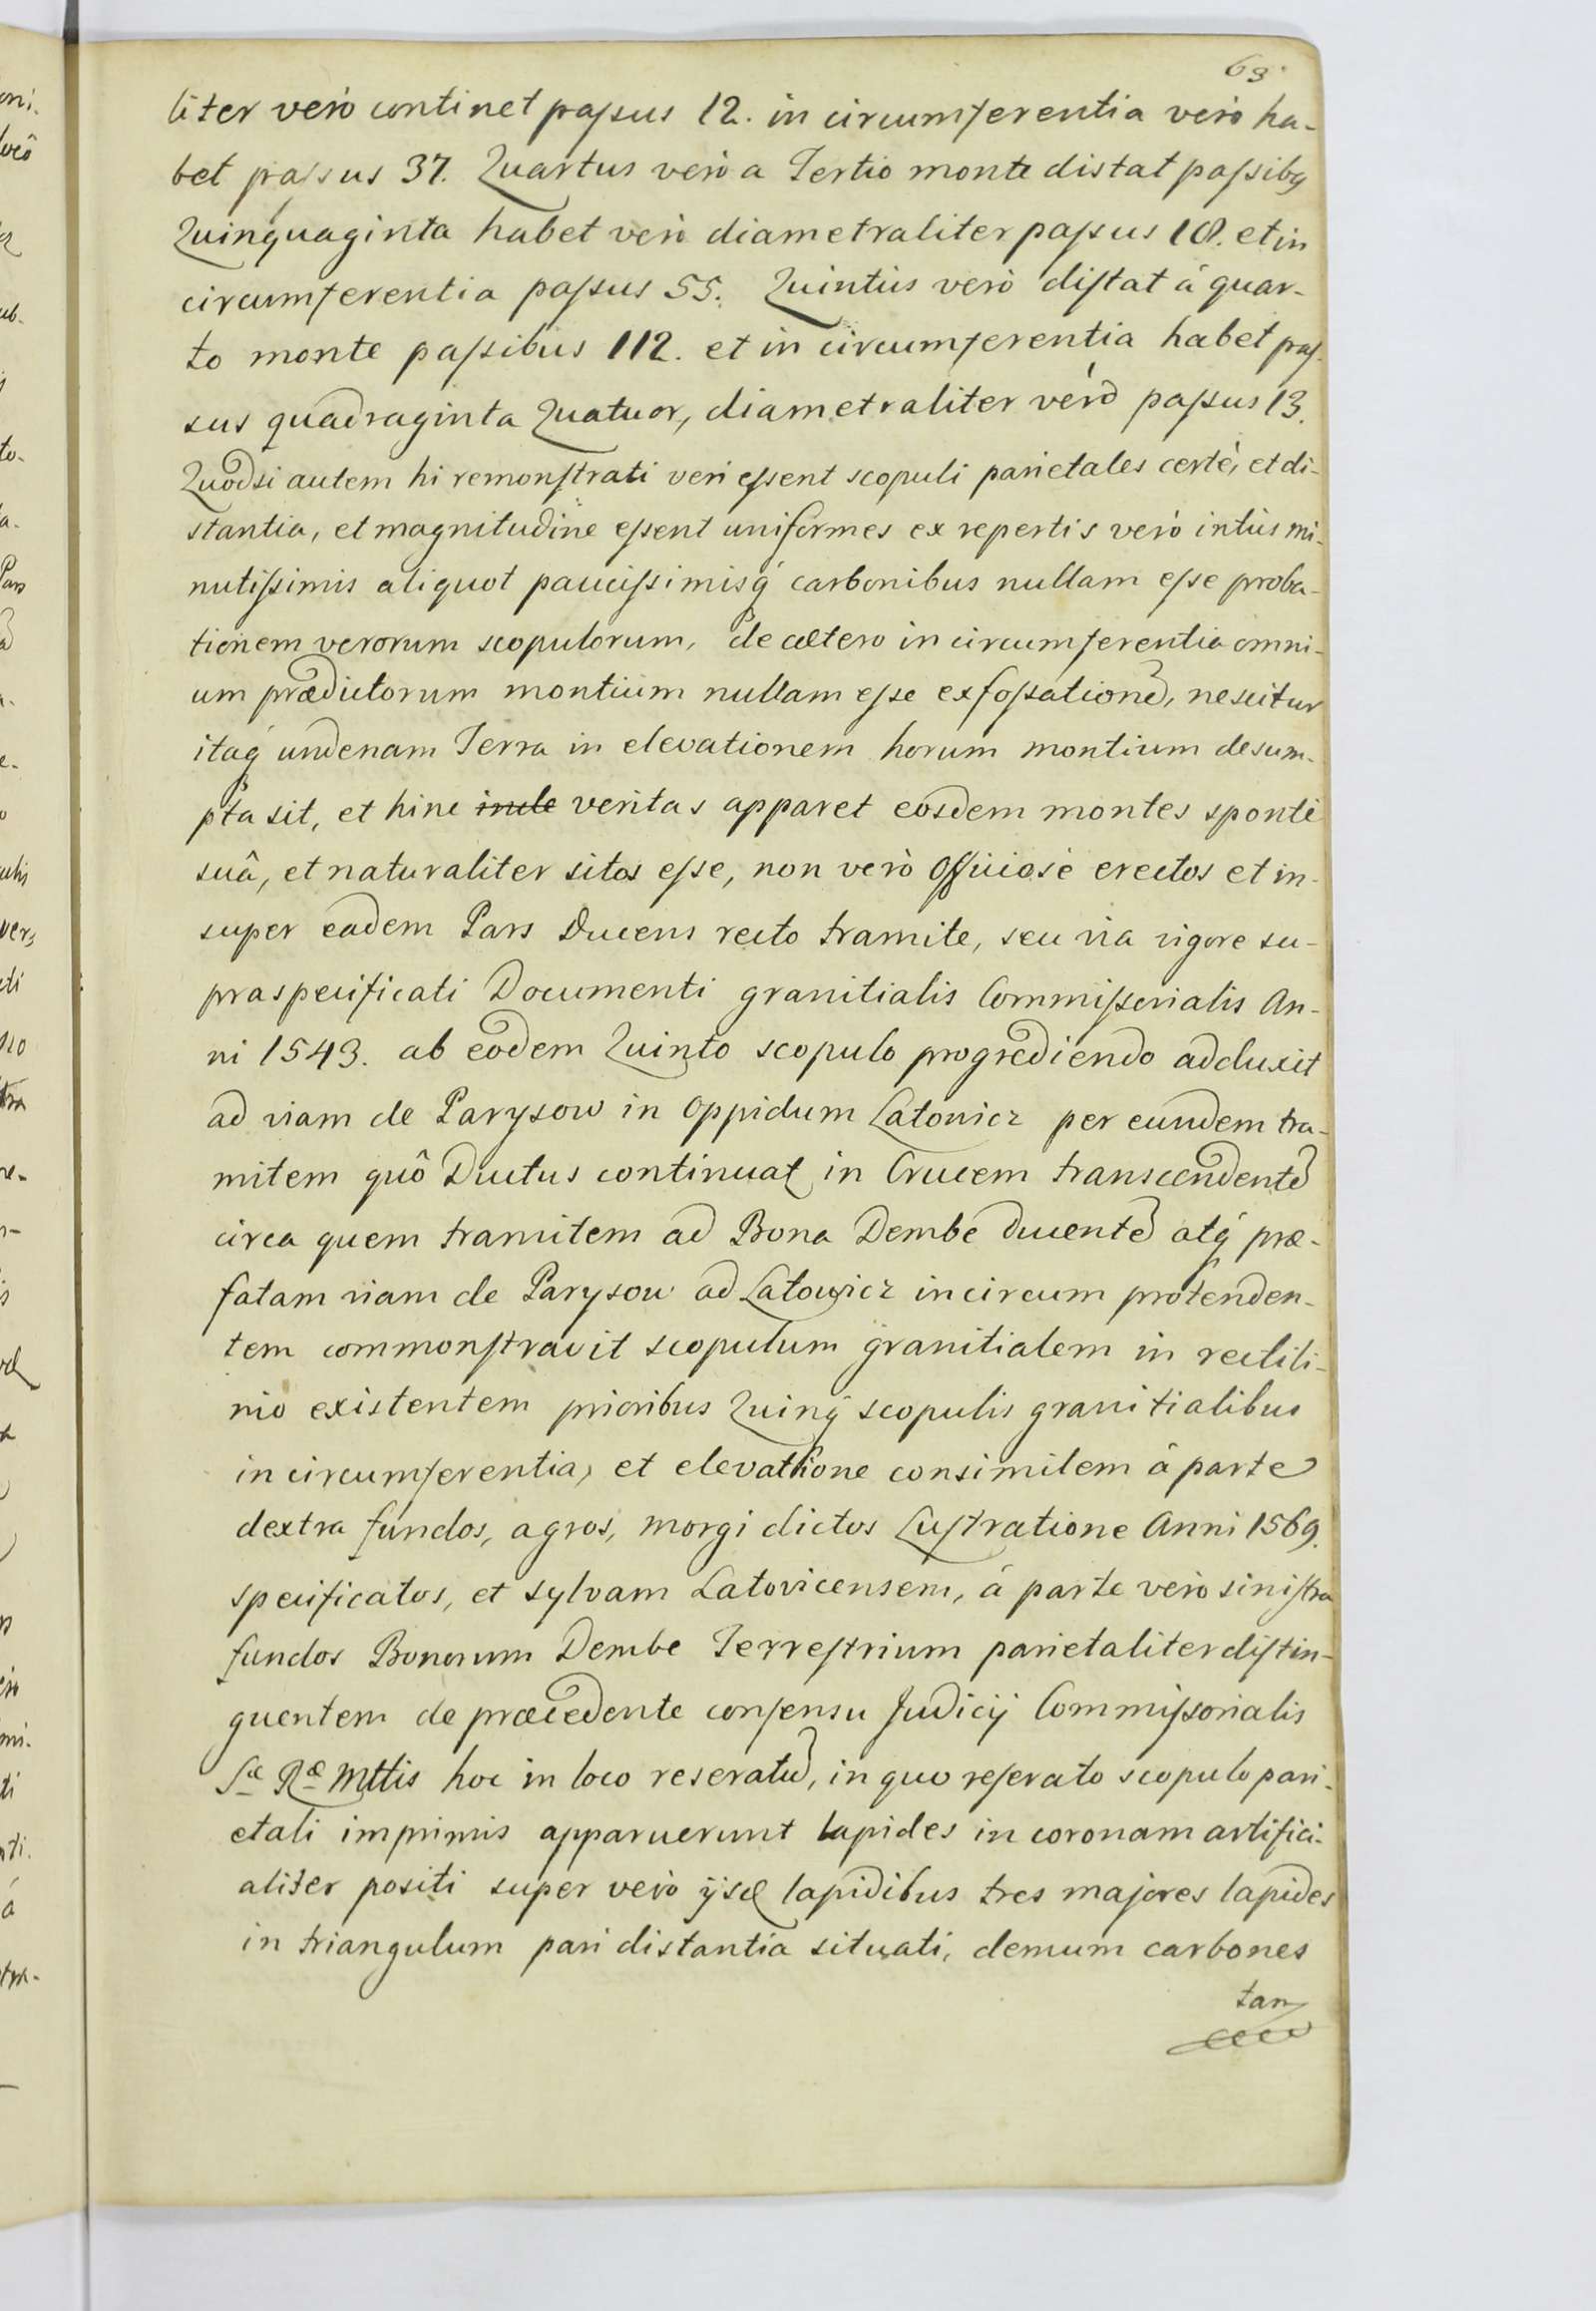 63.
liter verò continet paſsus 12. in circumferentia verò ha-
bet paſsus 37. Quartus verò a Tertio monte distat paſsibq
Quinquaginta habet verò diametraliter paſsus 18. et in
circumferentia paſsus 55. Quintus verò diſtat á quar-
to monte paſsibus 112. et in circumferentia habet paſ-
sus quadraginta Quatuor, diametraliter verò paſsus 13.
Quodsi autem hi remonſtrati veri eſsent scopuli parietales certè, et di-
stantia, et magnitudine eſsent uniformes ex repertis verò intùs mi-
nutiſsimis aliquot pauciſsimisq́ carbonibus nullam eſse proba-
tionem verorum scopulorum, de cætero in circumferentia omni-
um prædictorum montium nullam eſse exfoſsationẽ, nescitur
itaq́ undenam Terra in elevationem horum montium desum-
pta sit, et hinc inde veritas apparet eosdem montes spontè
suâ, et naturaliter sitos eſse, non verò Officiosè erectos et in-
super eadem Pars Ducens recto tramite, seu via vigore su-
praspecificati Documenti granitialis Commiſsorialis An-
ni 1543. ab eodem Quinto scopulo progrediendo adduxit
ad viam de Parysow in Oppidum Latowicz per eundem tra-
mitem quô Ductus continuat in Crucem transcendentẽ
circa quem tramitem ad Bona Dembe ducentẽ atq́ præ-
fatam viam de Parysow ad Latowicz in circum protenden-
tem commonſtravit scopulum granitialem in rectili-
nio existentem prioribus Quinq́ scopulis granitialibus
in circumferentia, et elevatione consimilem á parte
dextra fundos, agros, morgi dictos Luſtratione Anni 1569.
specificatos, et sylvam Latovicensem, á parte verò siniſtra
fundos Bonorum Dembe Terreſtrium parietaliter diſtin-
guentem de præcedente conſensu Judicij Commiſsorialis
Sæ Ræ Mttis hoc in loco reseratũ, in quo reſerato scopulo pari-
etali imprimis apparuerunt lapides in coronam artifici-
aliter positi super verò ijsd lapidibus tres majores lapides
in triangulum pari distantia situati, demum carbones
tan